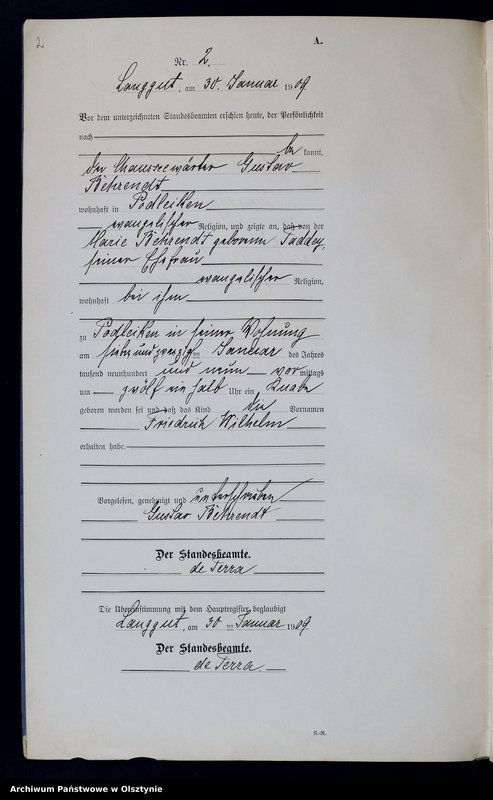 2
A.
Nr. 2.
Langgut, am 30. Januar 1909
Vor dem unterzeichneten Standesbeamten erschien heute, der Persönlichkeit
nach
be kannt,
der Chausseewärter Gustav
Behrendt
wohnhaft in Podleiken
evangelischer Religion, und zeigte an, daß von der
Marie Behrendt geborenen Taddey,
seiner Ehefrau
evangelischer Religion,
wohnhaft bei ihm
zu Podleiken in seiner Wohnung
am sieben und zwanzigsten Januar des Jahres
tausend neunhundert und neun vor mittags
um zwölf ein halb Uhr ein Knabe
geboren worden sei und daß das Kind die Vornamen
Friedrich Wilhelm
erhalten habe.
Vorgelesen, genehmigt und unterschrieben
Gustav Behrendt
Der Standesbeamte.
de Terra
Die Übereinstimmung mit dem Hauptregister beglaubigt
Langgut, am 30 ten Januar 1909
Der Standesbeamte.
de Terra.
R.-R.
Archiwum Państwowe w Olsztynie